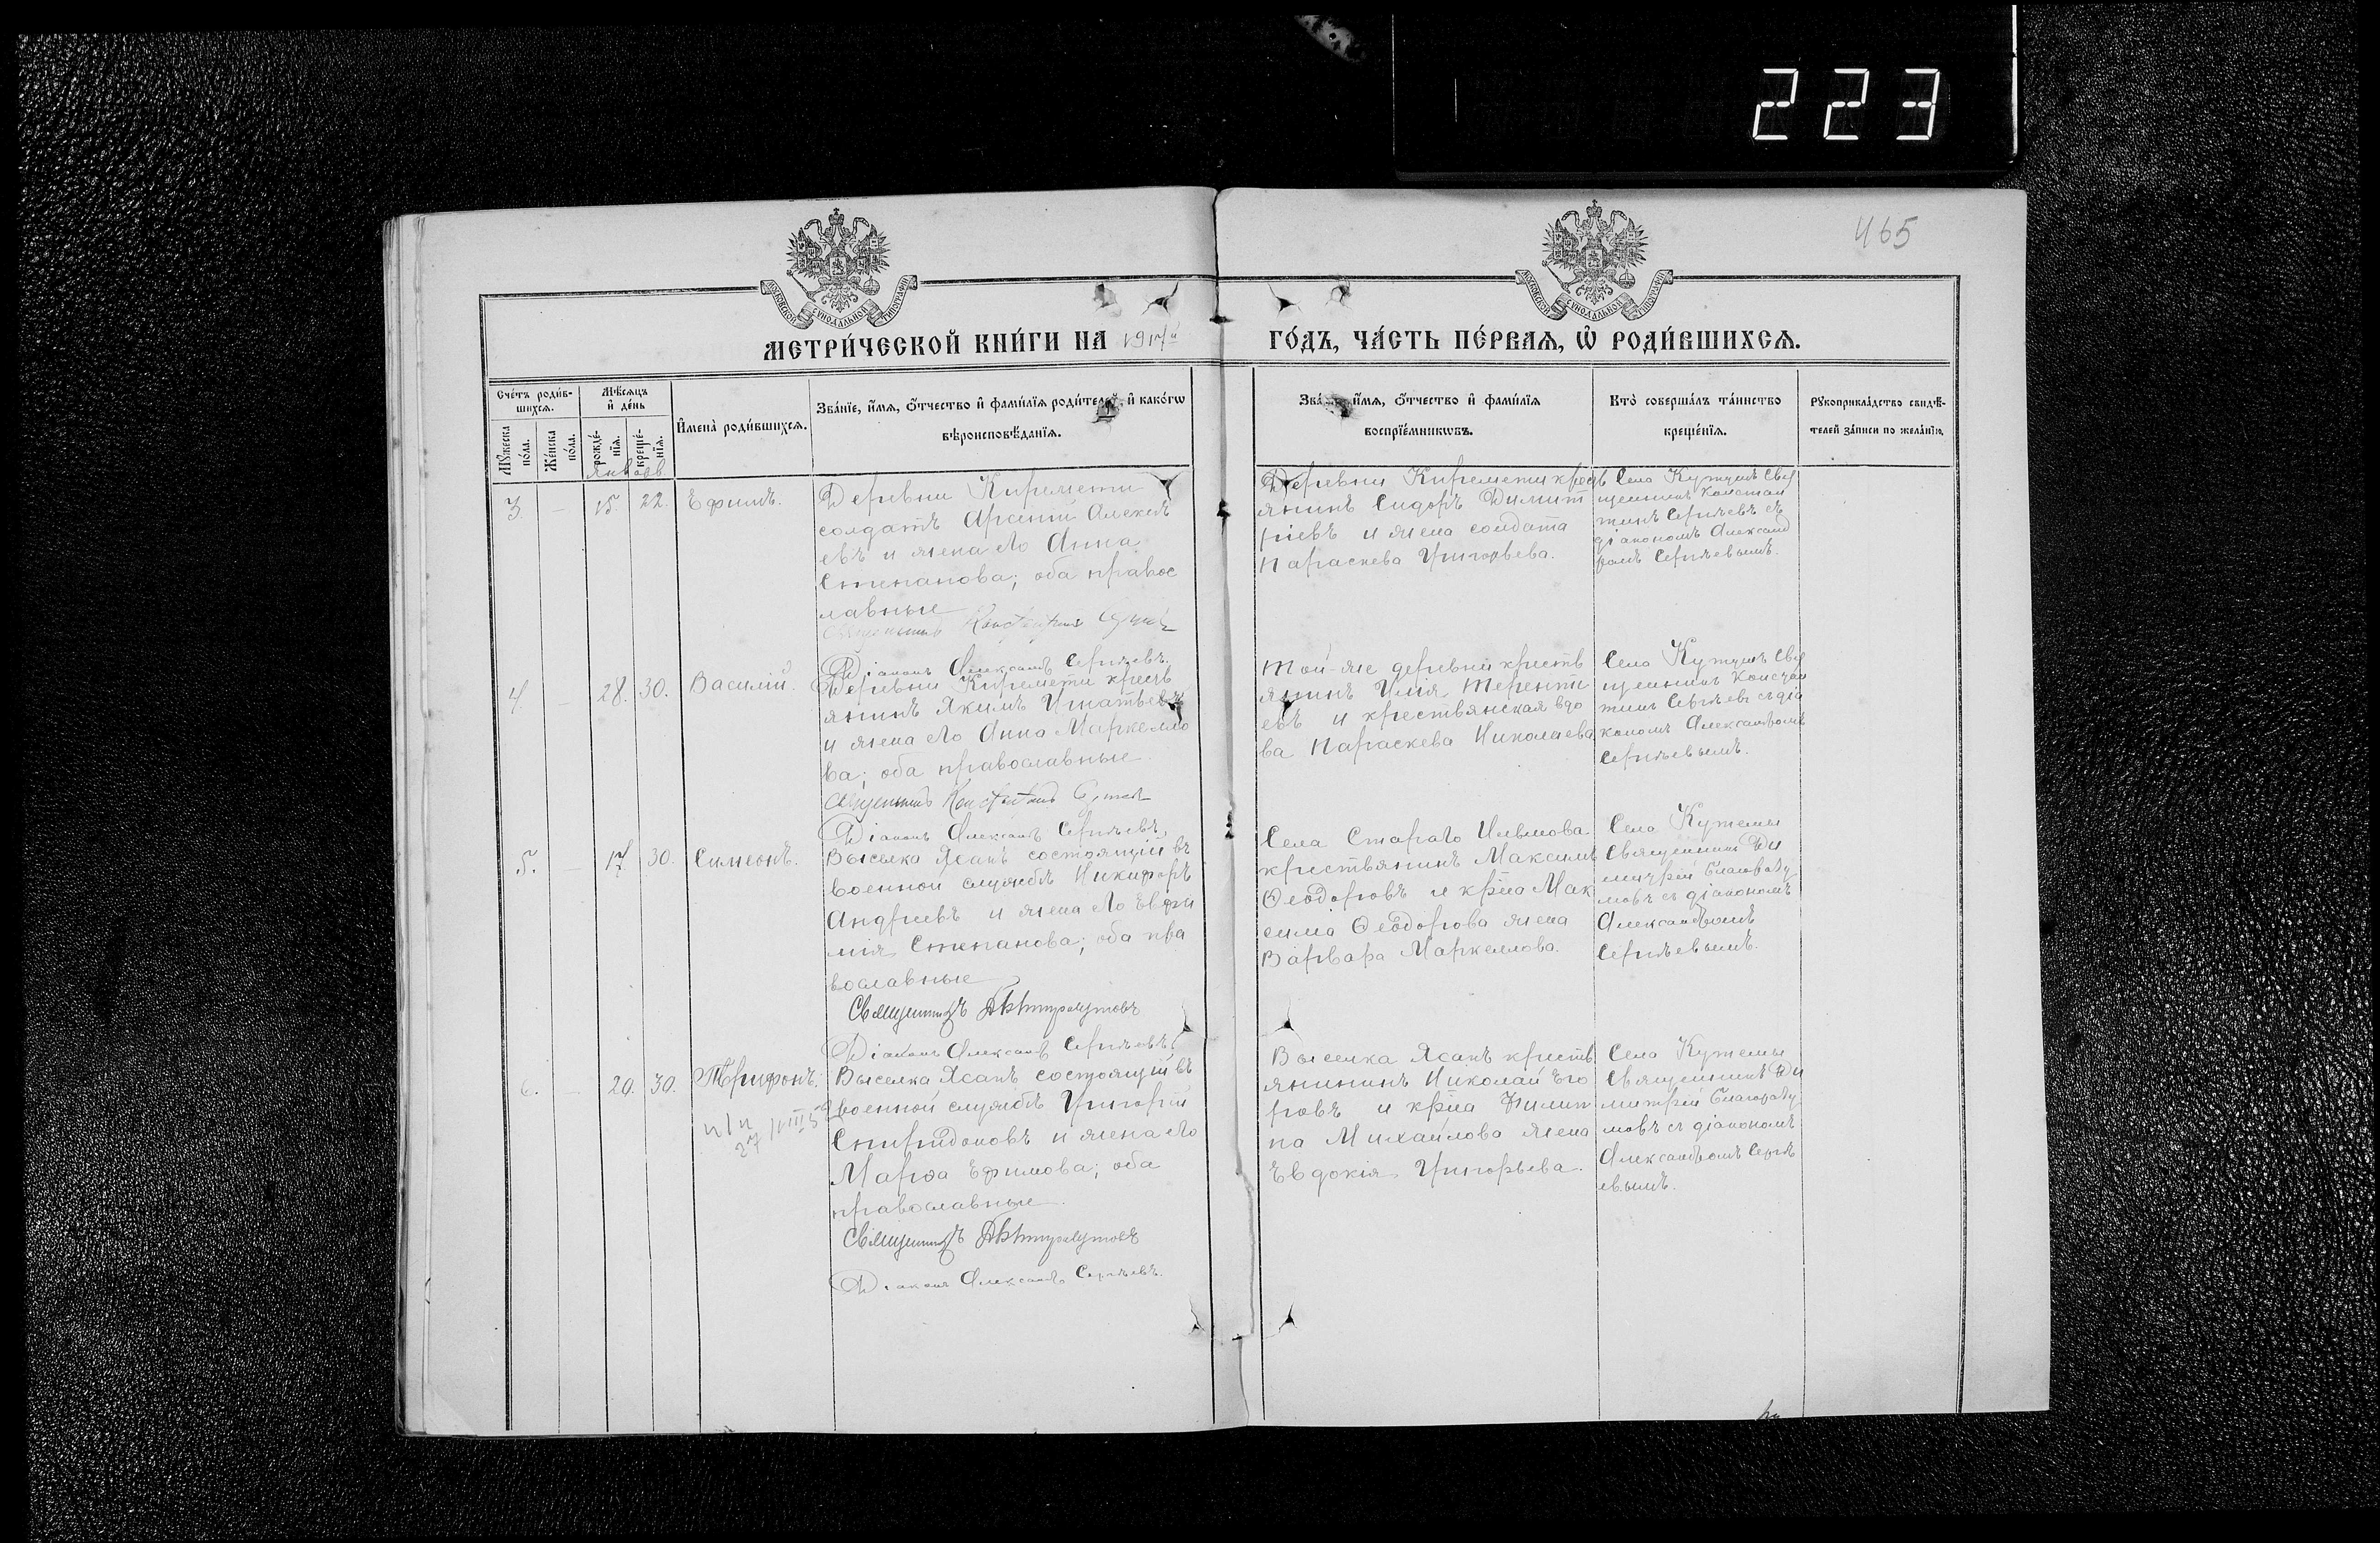 223
465
МОСКОВСКОЙ СУНОДАЛЬНОЙ ТИПОГРАФІИ
МОСКОВСКОЙ СУНОДАЛЬНОЙ ТИПОГРАФІИ
МЕТРИ́ЧЕСКОЙ КНИ́ГИ НА 1917й ГО́ДЪ, ЧА́СТЬ ПЕ́РВАѦ, Ѡ҆ РОДИ́ВШИХСѦ.
Сче́тъ роди́в-
шихсѧ.
Мꙋ́жеска по́ла.
Же́нска по́ла.
Мѣ́сѧцъ
и҆ де́нь
рожде́-
нїѧ.
креще́-
нїѧ.
И҆мена̀ роди́вшихсѧ.
Зва́нїе, и҆́мѧ, ѻ҆́тчество и҆ фами́лїѧ роди́телей, и҆ како́гѡ
вѣроисповѣ́данїѧ.
и҆́мѧ, ѻ҆́тчество и҆ фами́лїѧ
воспрїе́мникѡвъ.
Кто̀ соверша́лъ та́инство
креще́нїѧ.
Рꙋкоприкла́дство свидѣ́-
телей за́писи по жела́нїю.
Январь
3 — 15. 22. Ефимъ.
Деревни Киремети
солдатъ Арсеній Алексѣ
евъ и жена его Анна
Степанова; оба правос
лавные
Священникъ
Діаконъ Александръ Сергѣевъ.
Деревни Киремети кресть
янинъ Сидоръ Димит
ріевъ и жена солдата
Параскева Григорьева.
Села Кутемъ Свя
щенникъ Констан
тинъ Сергѣевъ съ
діакономъ Александ
ромъ Сергѣевымъ.
4. — 28. 30. Василій.
Деревни Киремети кресть
янинъ Якимъ Игнатьевъ
и жена его Анна Маркелло
ва; оба православные
Священникъ
Діаконъ Александръ Сергѣевъ
Той-же деревни крестъ
янинъ Илія Терентi
евъ и крестьянская вдо
ва Параскева Николаева
Села Кутемъ Свя
щенникъ Констан
тинъ Сергѣевъ съ діа
кономъ Александромъ
Сергѣевымъ.
5. — 17. 30. Симеонъ.
Выселка Ясакъ состоящій въ
военной службѣ Никифоръ
Андреевъ и жена его Евфи
мія Степанова; оба пра
вославные
Священникъ
Діаконъ Александръ Сергѣевъ
Села Стараго Ильмова
крестьянинъ Максимъ
Ѳеодоровъ и кр-на Мак
сима Ѳеодорова жена
Варвара Маркеллова.
Села Кутемы
Священникъ Ди
митрій Благораѕу
мовъ съ діакономъ
Александромъ
Сергѣевымъ.
6. — 20. 30. Трифонъ.
Выселка Ясакъ состоящій въ
военной службѣ Григорій
Спиридоновъ и жена его
Марѳа Ефимова; оба
православные.
Священникъ
Діаконъ Александръ Сергѣевъ.
Выселка Ясакъ кресть
янининъ Николай Его
ровъ и кр-на Филип
па Михайлова жена
Евдокія Григорьева.
Села Кутемы
Священникъ Ди
митрій Благоразу
мовъ съ діакономъ
Александромъ Сергѣ
евымъ.